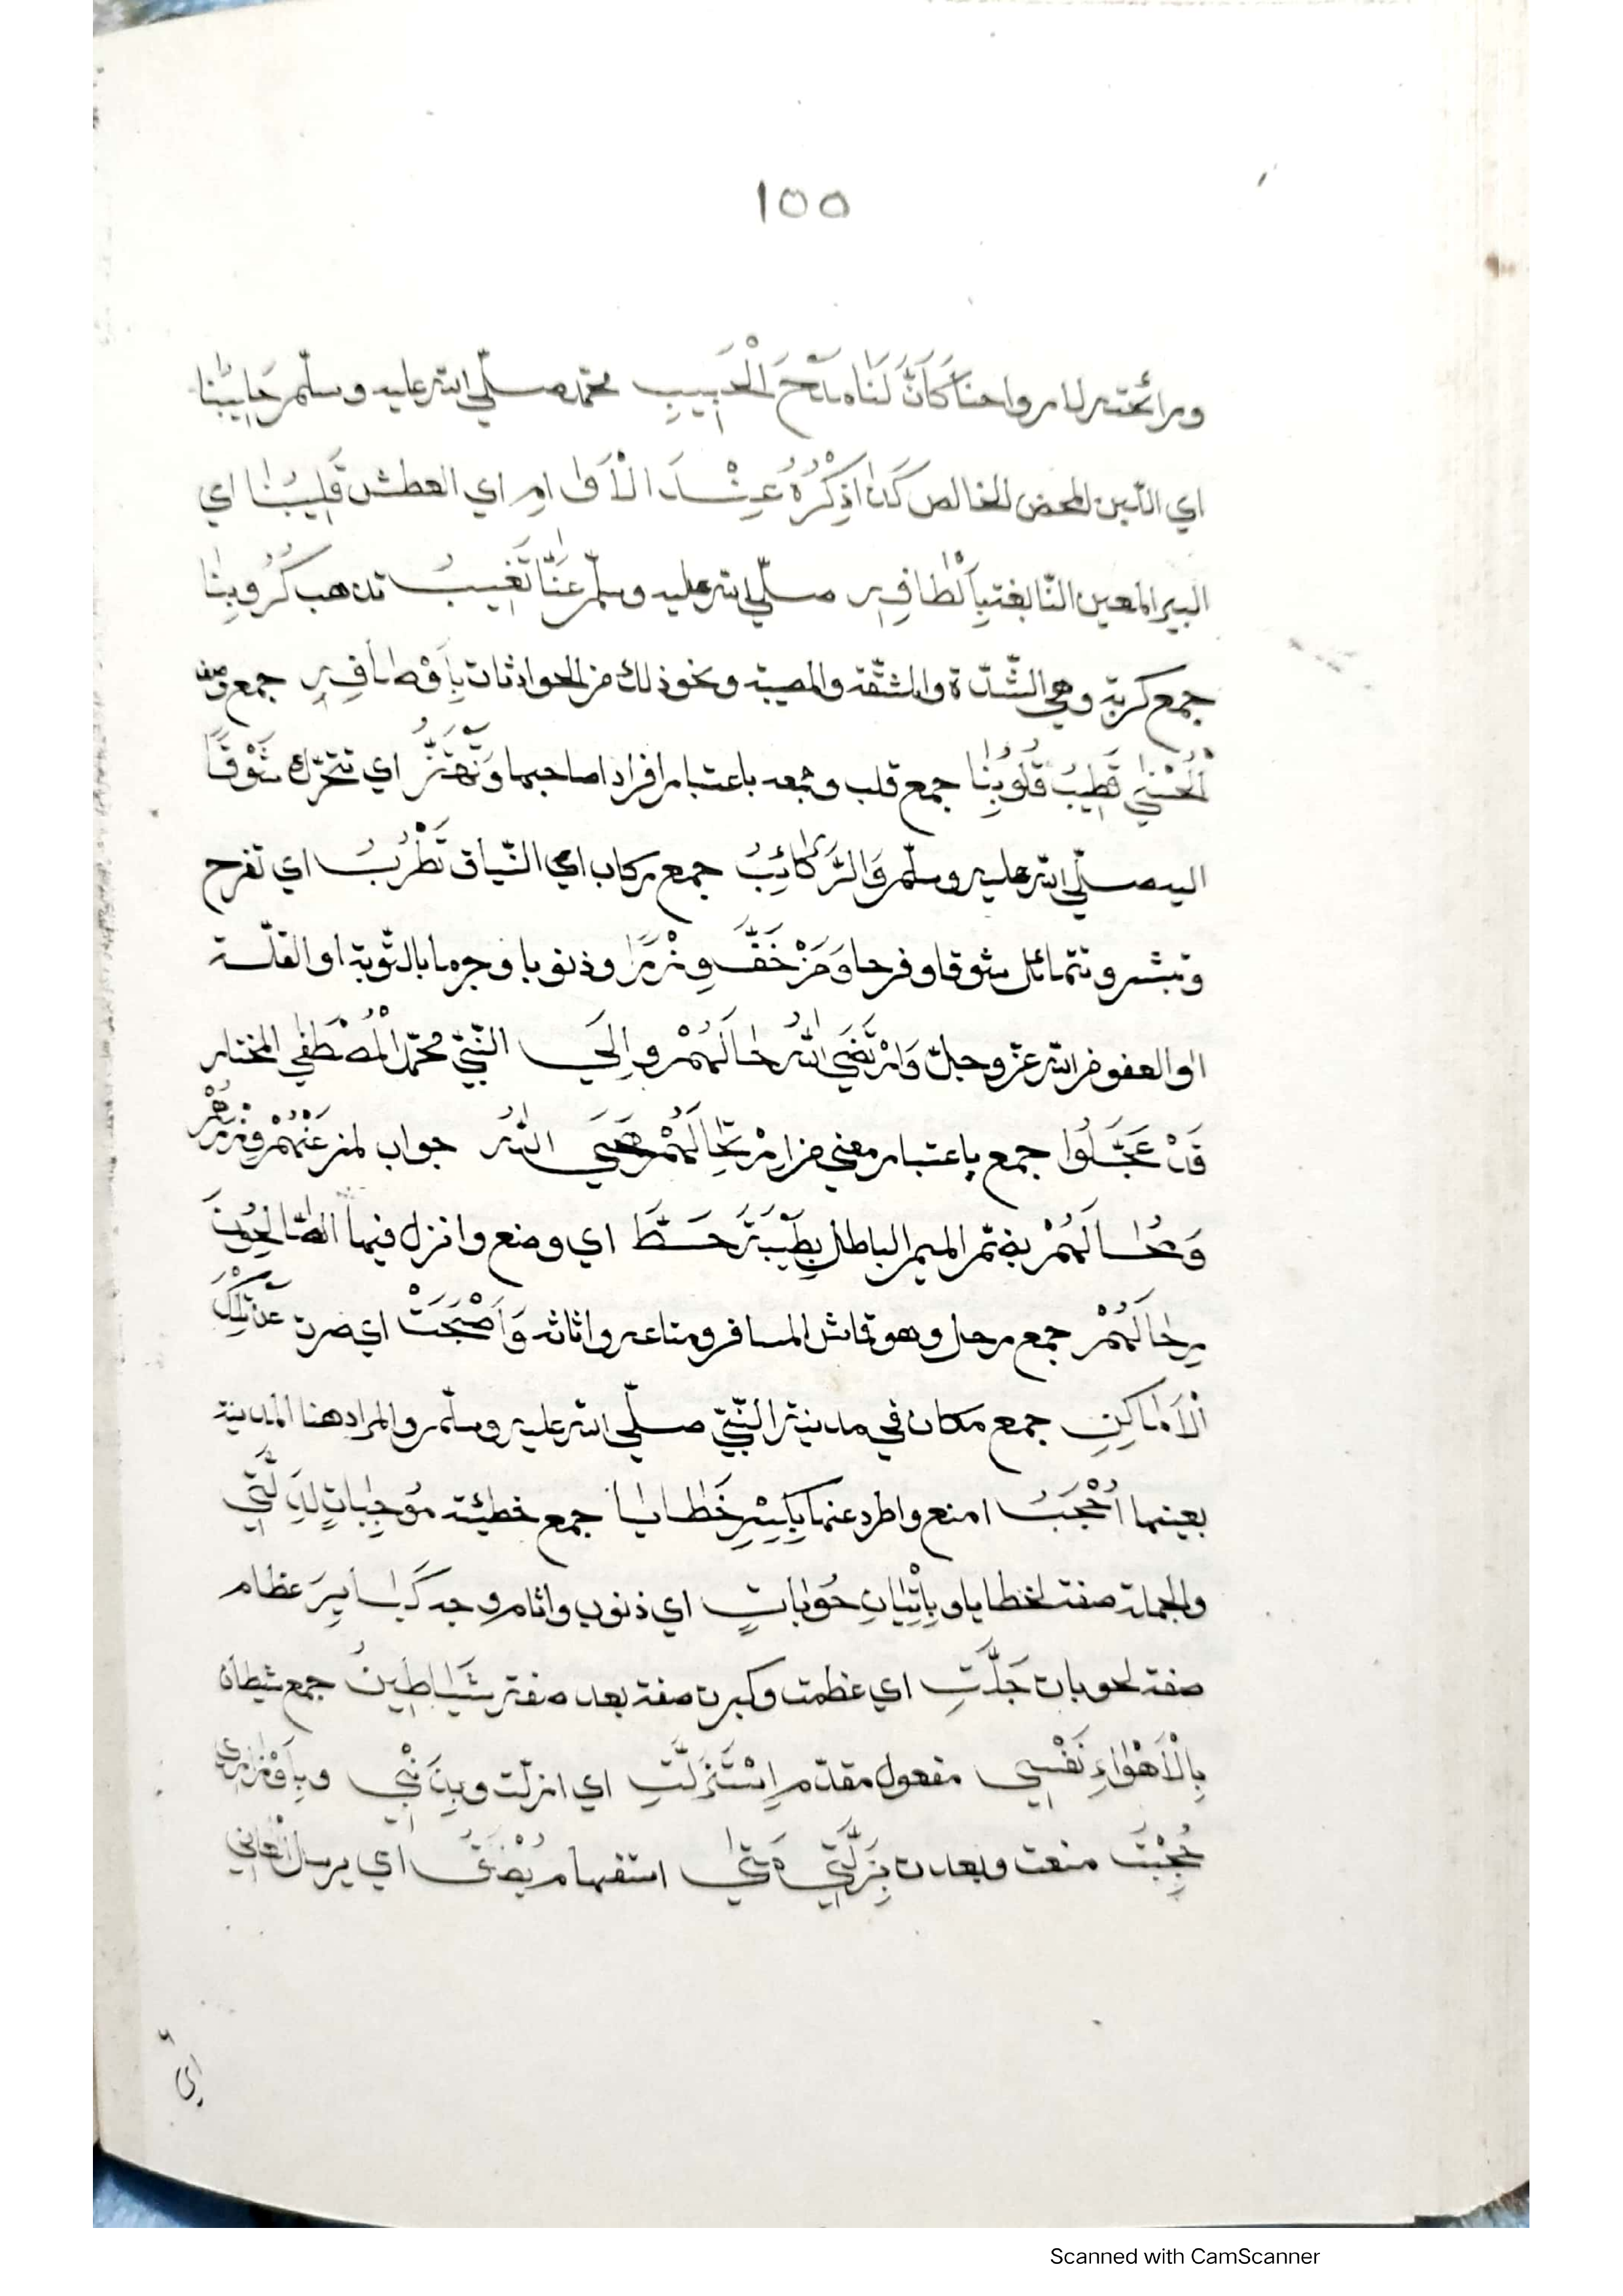 ١٥٥
ورائحته لارواحنا كَأَنَّ لَنَا مَدْحَ الْحَبِيبِ محمّد صلّي الله عليه وسلّم حَلِيبُنَا
اي اللّبن المحض الخالص كَذَا ذِكْرُهُ عِنْدَ الْأُوَامِ اي العطش قَلِيبُنَا اي
البير المعين النّابغة بِأَلْطَافِهِ صلّي الله عليه وسلّم عَنَّا تَغِيبُ تذهب كُرُوبُنَا
جمع كربة وهي الشّدّة والمشقّة والمصيبة ونحو ذلك من الحوادثات بِأَوْصَافِهِ جمع وصف
الْحُسْنَي تَطِيبُ قُلُوبُنَا جمع قلب وجمعه باعتبار افراد اصاحبها وَتَهْتَزُّ اي تتحرّك شَوْقًا
اليه صلّي الله عليه وسلّم وَالرَّكَائِبُ جمع ركاب اي النّياق تَطْرُبُ اي تفرح
وتبشر وتتمائل شوقا وفرحا وَمَنْ خَفَّ وِزْرًا وذنوبا وجرما بالتّوبة او القلّة
او العفو من الله عزّ وجلّ وَارْتَضَي اللهُ حَالَهُمْ وإِلَي النّبيّ محمّد الْمُصْطَفَي المختار
قَدْ عَجَّلُوا جمع باعتبار معني من ارْتِحَالَهُمْ مَحَي اللهُ جواب لمن عَنْهُمْ وِزْرَهُمْ
وَمُحَالَهُمْ بضمّ الميم الباطل بِطَيْبَةَ حَطَّ اي وضع وانزل فيها الصَّالِحُونَ
رِحَالَهُمْ جمع رحل وهو قماش المسافر ومتاعه واثاثه وَأَصْبَحْتُ اي صرت عَنْ تِلْكَ
الْأَمَاكِنِ جمع مكان في مدينة النّبيّ صلّي الله عليه وسلّم والمراد هنا المدينة
بعينها أُحْجَبُ امنع واطرد عنها بِكَسْبِ خَطَايَا جمع خطيئة مُوْجِبَاتٍ لِذِلَّتِي
والجملة صفت لخطايا وبِإِتْيَانِ حُوْبَاتٍ اي ذنوب واثام وجد كَبَايِرَ عظام
صفة لحوبات جَلَّتِ اي عظمت وكبرت صفة بعد صفة شَيَاطِينُ جمع شيطان
بِالْأَهْوَاءِ نَفْسِي مفعول مقدّم اِسْتَزَلَّتِ اي ازلّت وبِذَنْبِي وبِأَوْزَارِي
حُجِبْتُ منعت وبعدت بِزَلَّتِي مَتَي استفهام يُطْلَقُ اي يرسل الْعَانِي